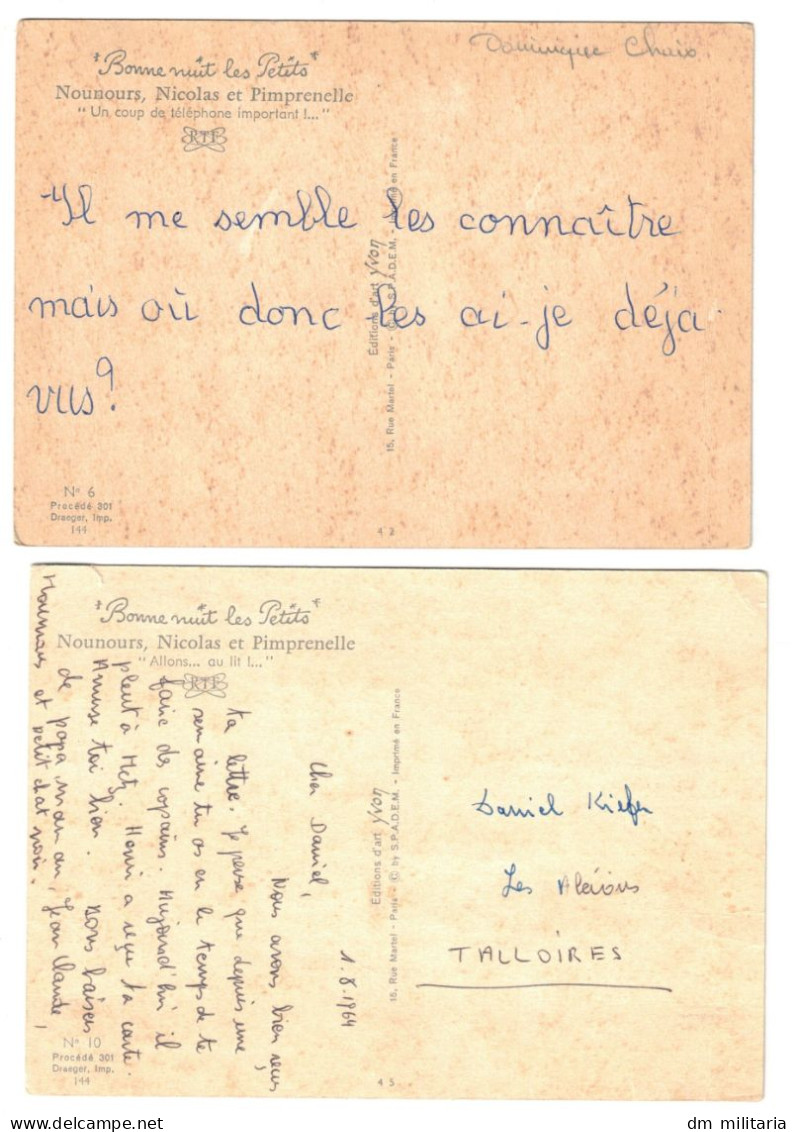 Dominique Chaix
"Bonne nuit les Petits"
Nounours, Nicolas et Pimprenelle
"Un coup de téléphone important !..."
RTF
Il me semble les connaître
mais où donc les ai-je déjà
vus ?
Editions d'art Yvon
15, Rue Martel - Paris - © by S.P.A.D.E.M. - Imprimé en France
N° 6
Procédé 301
Draeger, Imp.
144
4 2
"Bonne nuit les Petits"
Nounours, Nicolas et Pimprenelle
"Allons... au lit !..."
RTF
1.8.1964
Cher Daniel,
Nous avons bien reçu
ta lettre. Je pense que depuis une
semaine tu as eu le temps de te
faire des copains. Aujourd'hui il
pleut à Metz. Henri a reçu ta carte.
Amuse toi bien. Bons baisers
de papa, maman, Jean Claude,
et petit chat noir.
Editions d'art Yvon
15, Rue Martel - Paris - © by S.P.A.D.E.M. - Imprimé en France
Daniel Kiefer
Les
TALLOIRES
N° 10
Procédé 301
Draeger, Imp.
144
4 5
dm militaria